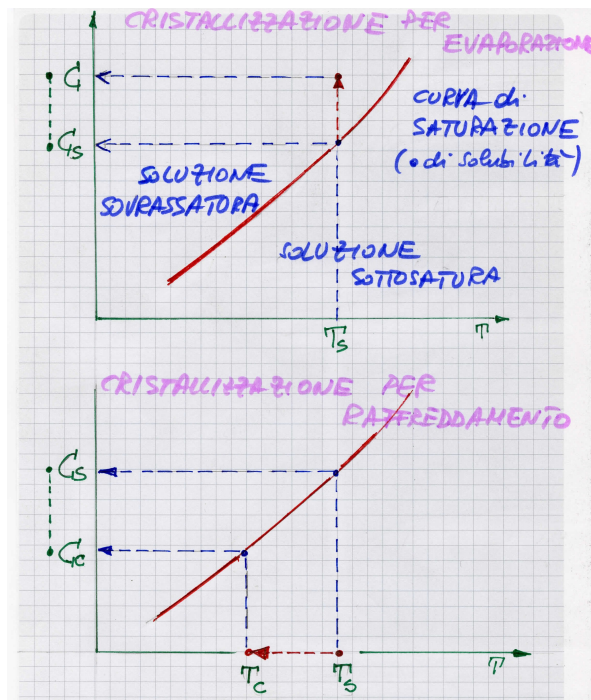 CRISTALLIZZAZIONE PER
EVAPORAZIONE
C
Cs
CURVA di
SATURAZIONE
(o di solubilità)
SOLUZIONE
SOVRASSATURA
SOLUZIONE
SOTTOSATURA
Ts
T
CRISTALLIZZAZIONE PER
RAFFREDDAMENTO
Cs
Cc
Tc
Ts
T